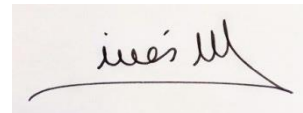 inés M